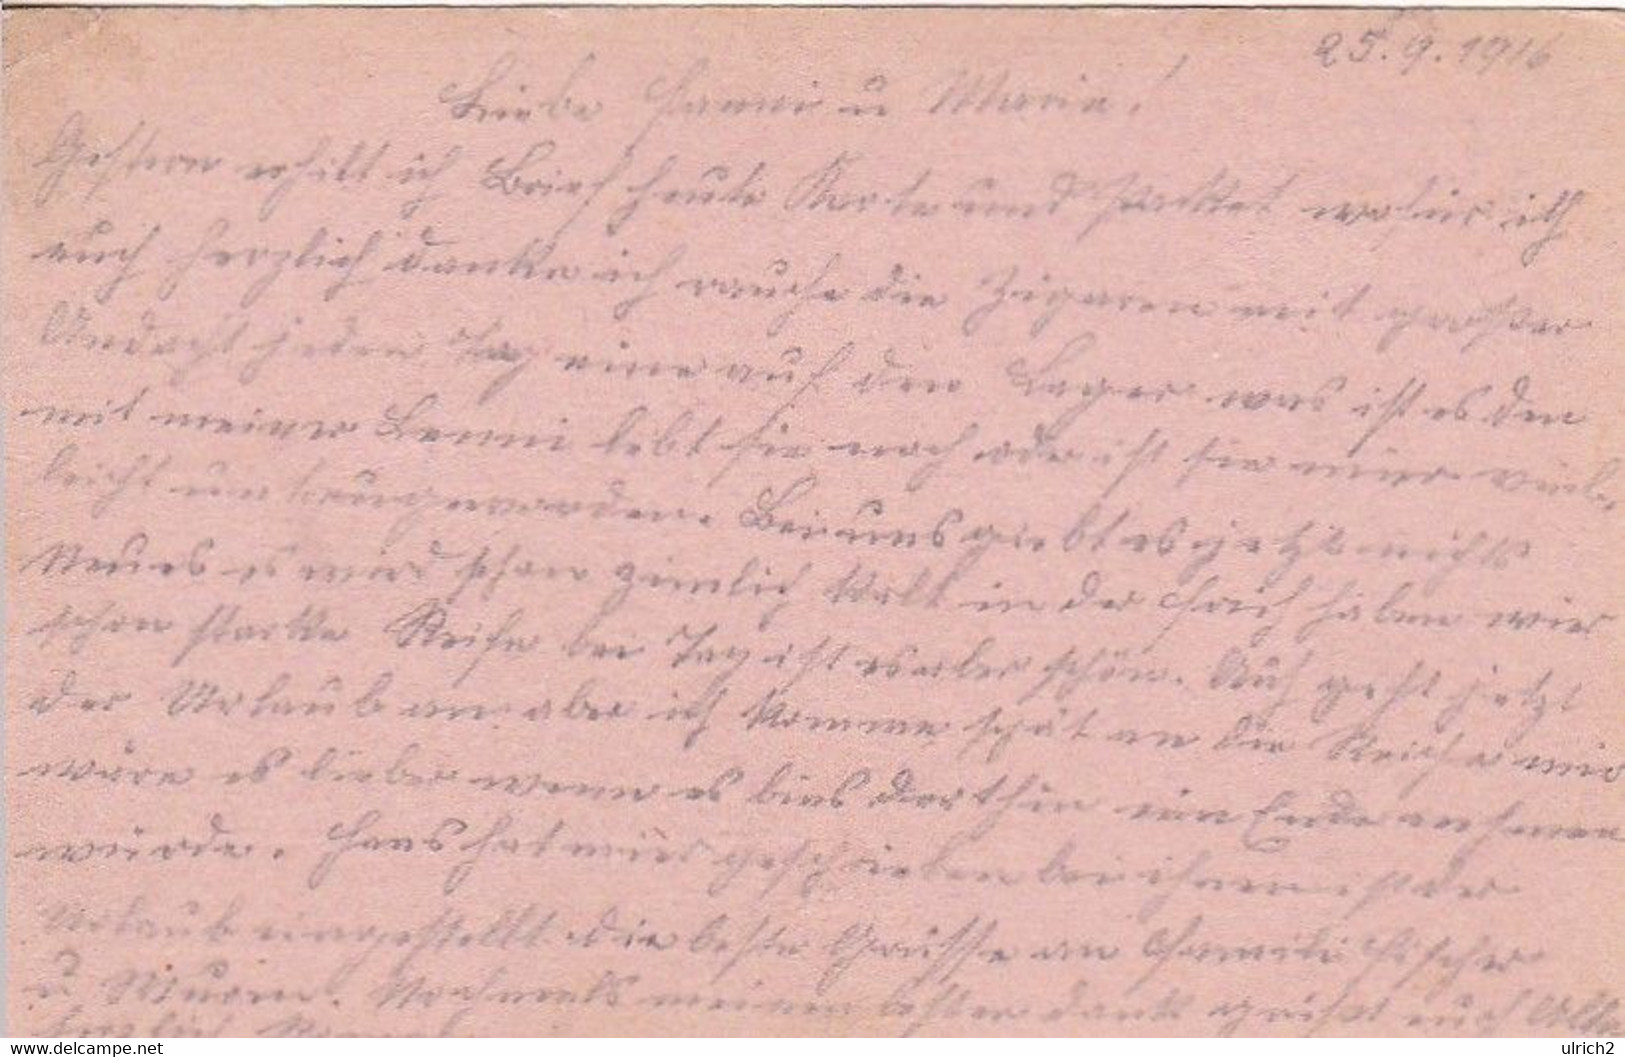 25.9.1916
Liebe Fanni u Marie!
Gestern erhilt ich Brief heute Karte und Packtet wofür ich
euch herzlich danke ich rauche die Zigaren mit großer
Andacht jeden Tag eine auf den Lager was ist es den
mit meiner Lenni lebt sie noch oder ist sie mir viel-
leicht untreu geworden. Bei uns giebt es jetzt nichts
Neues es wird schon zimlich kalt in der Früh haben wir
schon starke Reife bei Tag ist es aber schön. Auch geht jetzt
der Urlaub an aber ich komme spät an die Reihe mir
wäre es lieber wenn es bis dorthin ein Ende nehmen
würde. Hans hat mir geschrieben bei ihnen ist der
Urlaub eingestellt. die beste Grüsse an Familie Fischer
u. Nochmals meinen besten dank grüßt euch Alle
herzlich
ulrich2